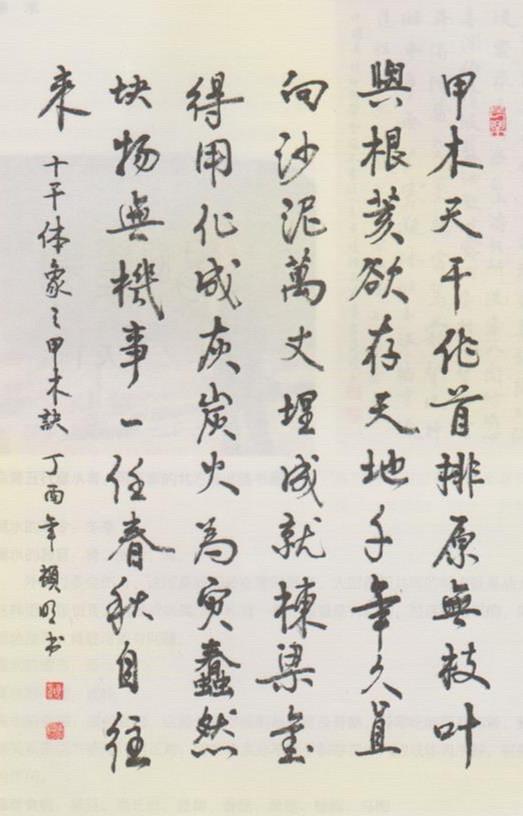 甲木天干作首排原無枝叶
與根荄欲存天地千年久直
向沙泥萬丈埋成就棟梁金
得用化成灰炭火為灾蠢然
块物無機事一任春秋自往
来
十干体象之甲木訣 丁酉年 书